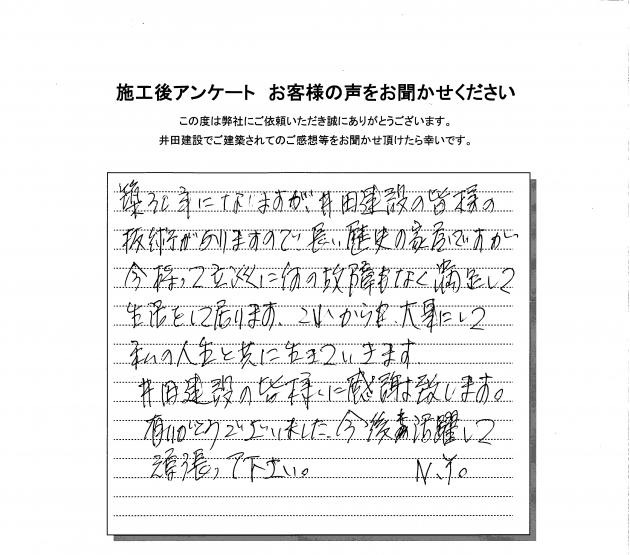 施工後アンケート お客様の声をお聞かせください
この度は弊社にご依頼いただき誠にありがとうございます。
井田建設でご建築されてのご感想等をお聞かせ頂けたら幸いです。
築34年になりますが、井田建設の皆様の
技術がありますので長い歴史の家屋ですが
今持って立派に何の故障もなく満足して
生活をして居ります、これからも大事にして
私の人生と共に生きていきます
井田建設の皆様に感謝致します。
有りがとうございました、今後共活躍して
頑張って下さい。 N.Y.